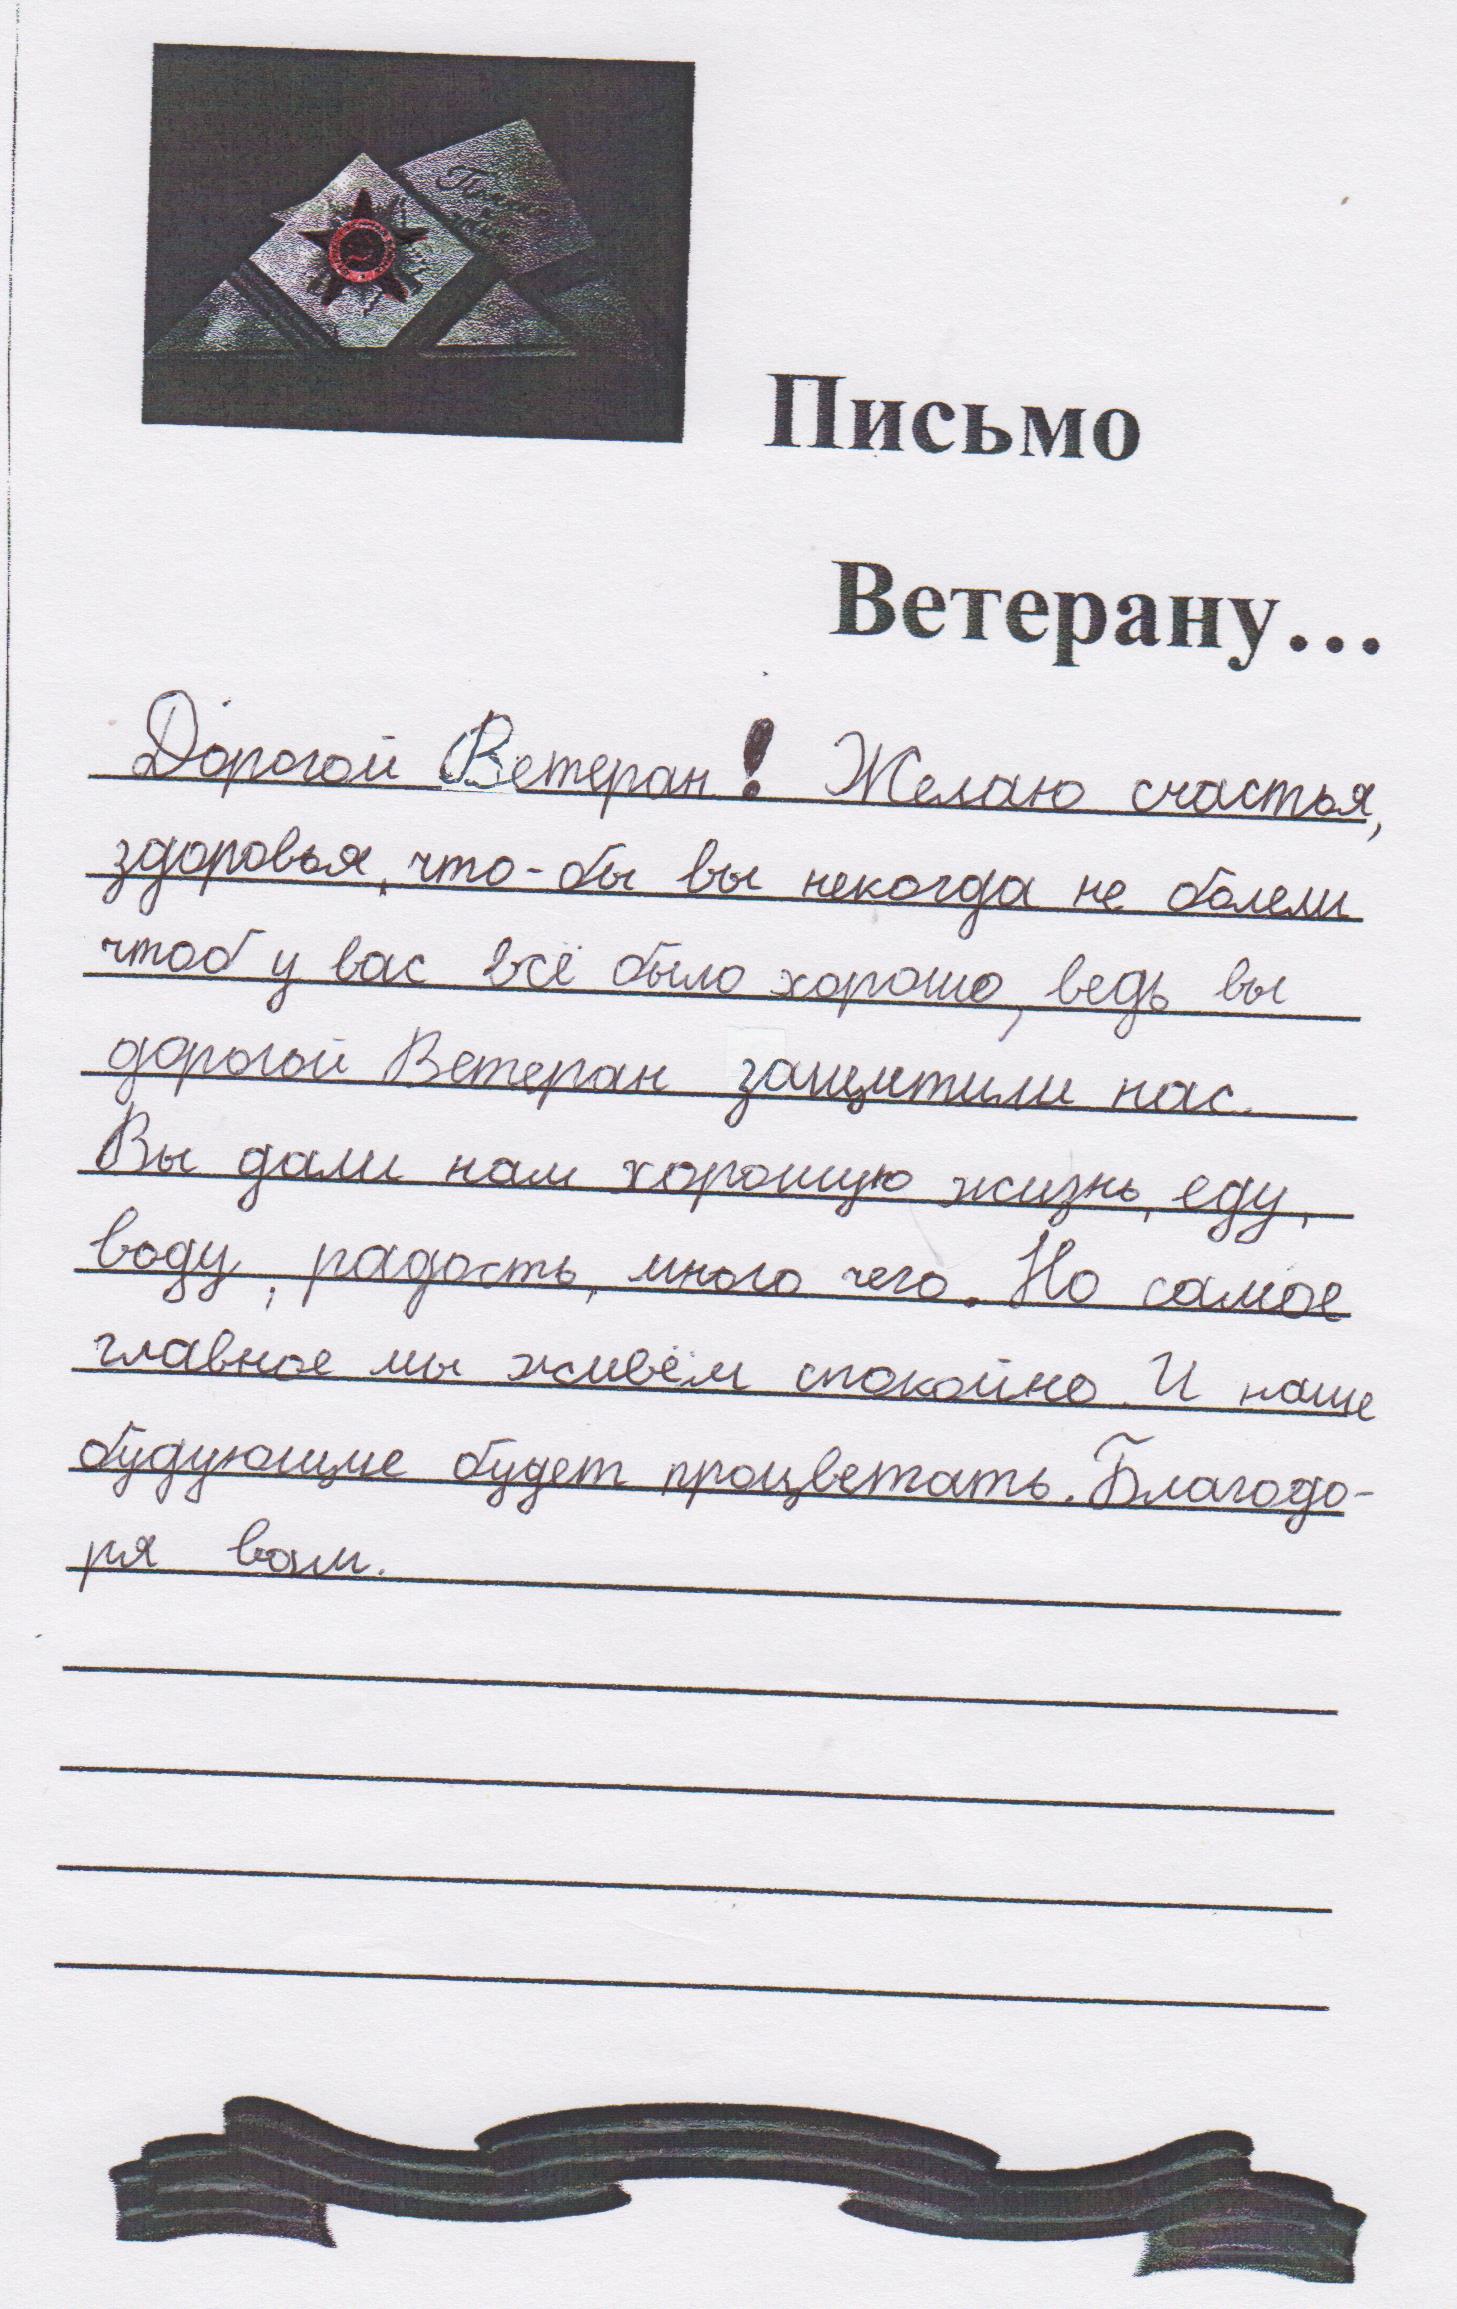 Письмо
Ветерану...
Дорогой Ветеран! Желаю счастья,
здоровья, что-бы вы некогда не болели
чтоб у вас всё было хорошо, ведь вы
дорогой Ветеран защитили нас.
Вы дали нам хорошую жизнь, еду,
воду, радость, много чего. Но самое
главное мы живём спокойно. И наше
будующие будет процветать. Благодо-
ря вам.